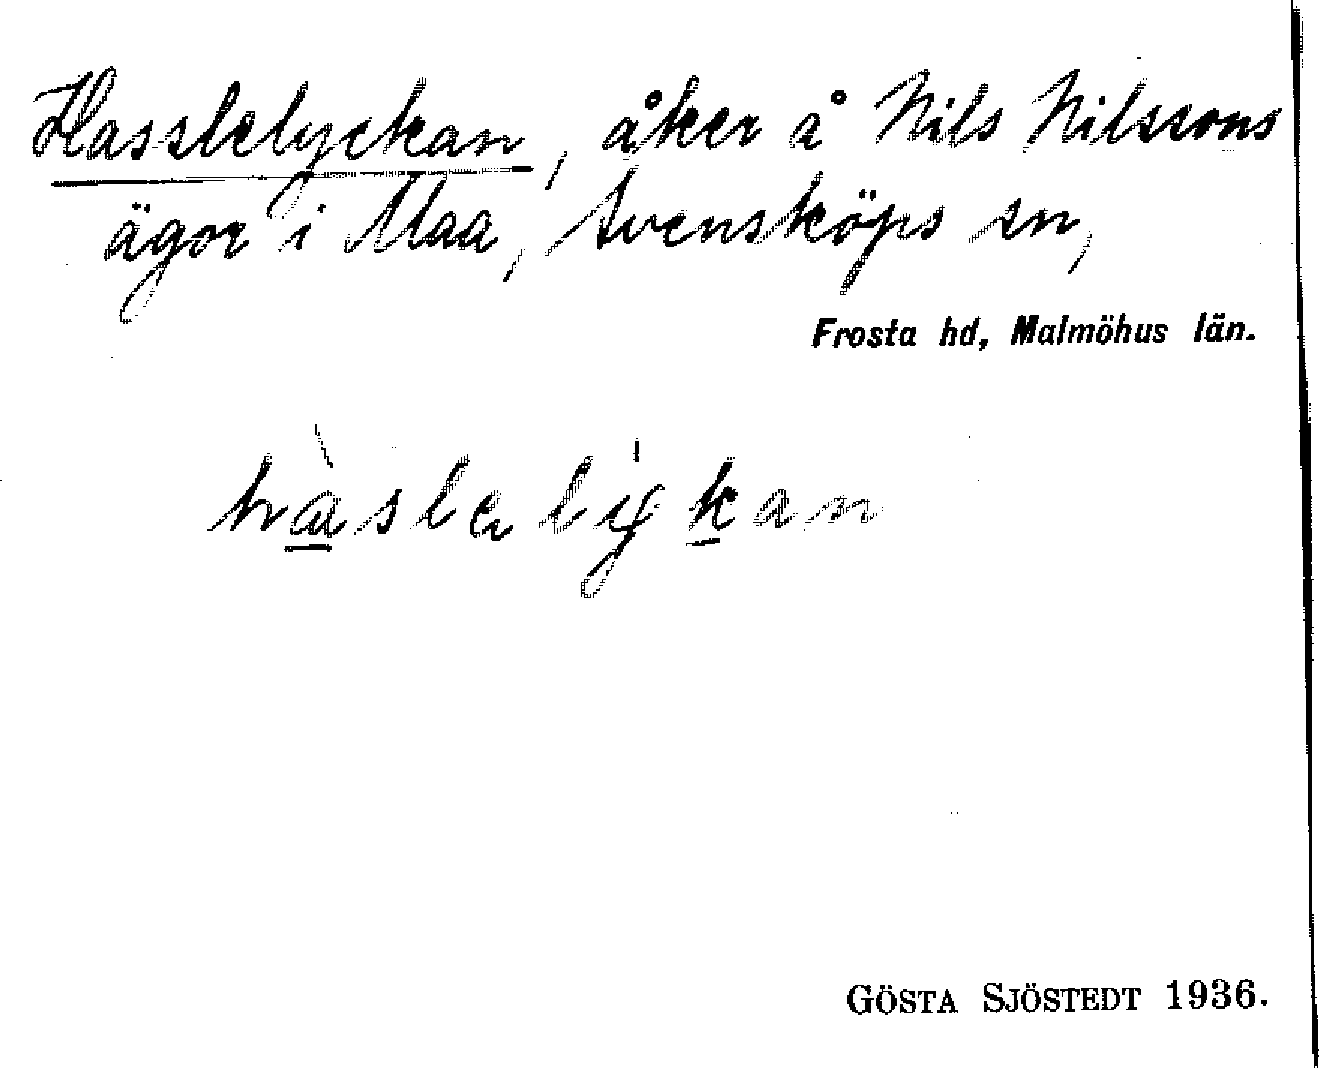 Hasslelyckan, åker å Nils Nilssons
ägor i Maa, Svensköps sn,
Frosta hd, Malmöhus län.
hàslelykan
GÖSTA SJÖSTEDT 1936.